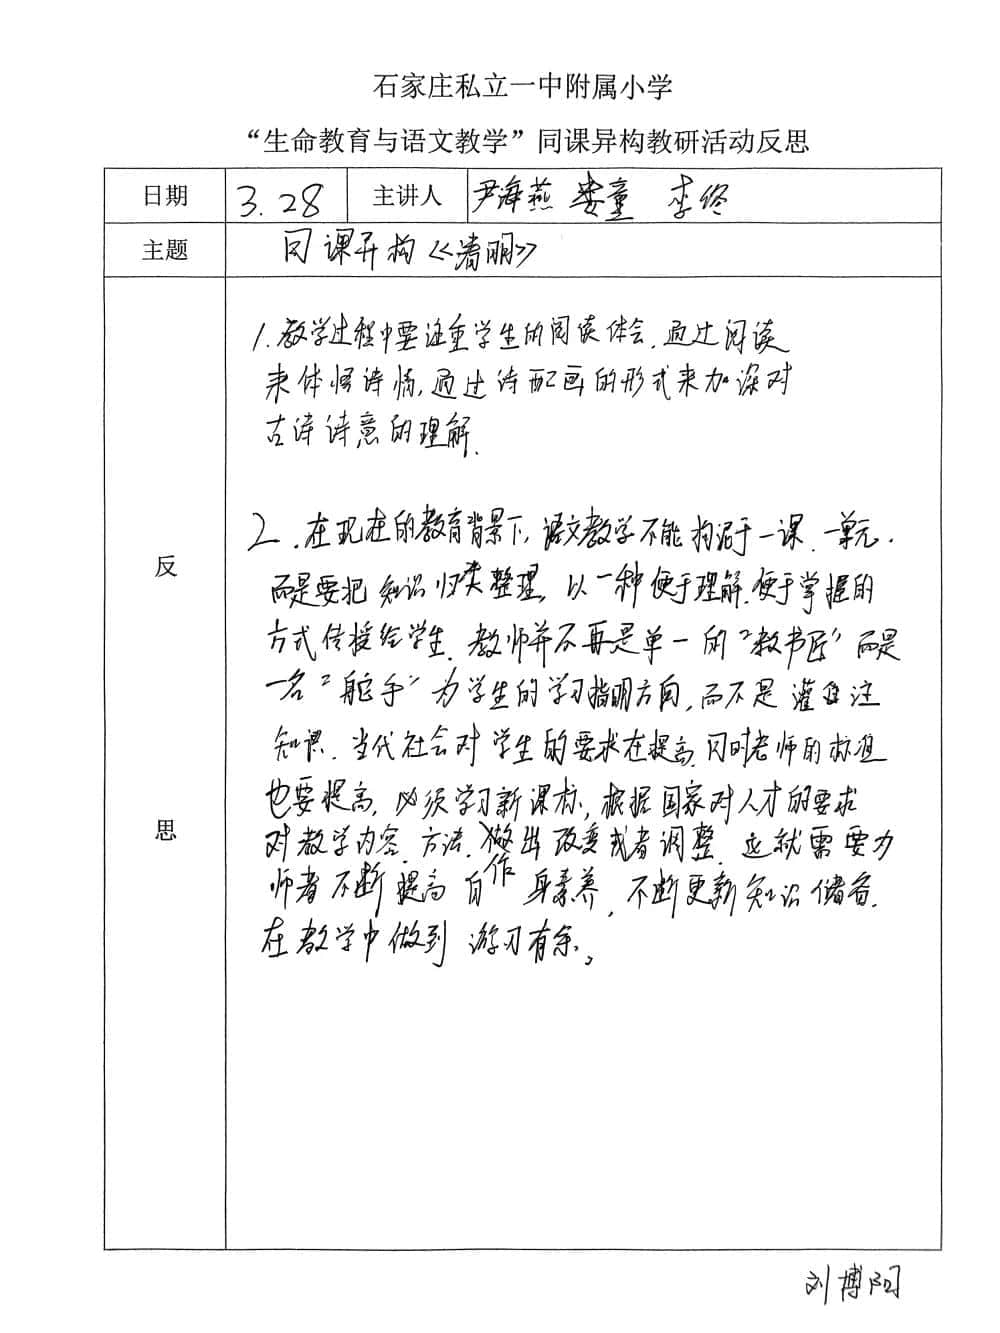 石家庄私立一中附属小学
“生命教育与语文教学”同课异构教研活动反思
日期 3.28 主讲人 尹海燕 娄童 李佟
主题 同课异构《清明》
反思
1.教学过程中要注重学生的阅读体会.通过阅读
来体悟诗情,通过诗配画的形式来加深对
古诗诗意的理解.
2.在现在的教育背景下,语文教学不能拘泥于一课.一单元.
而是要把知识归类整理,以一种便于理解.便于掌握的
方式传授给学生.教师并不再是单一的“教书匠”而是
一名“舵手”为学生的学习指明方向,而不是灌注
知识.当代社会对学生的要求在提高.同时老师的标准
也要提高.必须学习新课标,根据国家对人才的要求
对教学内容.方法.做出改变或者调整.这就需要为
师者不断提高自身素养,不断更新知识储备.
作
在教学中做到游刃有余。
刘博阳